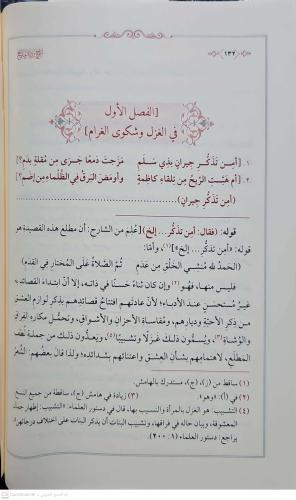 ١٣٢
[الفصل الأول
في الغزل وشكوى الغرام]
١. [أمن تذكر جيران بذي سلم مزجت دمعا جرى من مقلة بدم؟]
٢. [أم هبت الريح من تلقاء كاظمة وأومض البرق في الظلماء من إضم؟]
(أمن تذكر جيران)
قوله: (فقال: أمن تذكر... إلخ) [علم من الشارح: أن مطلع هذه القصيدة هو
قوله: «أمن تذكر... إلخ»](١)، وأما:
(الحمد لله منشي الخلق من عدم ثم الصلاة على المختار في القدم)
فليس منها، فهو(٢) وإن كان ثناء حسنا في ذاته، إلا أن ابتداء القصائد به
غير مستحسن عند الأدباء؛ لأن عادتهم افتتاح قصائدهم بذكر لوازم العشق
من ذكر الأحبة وديارهم، ومقاساة الأحزان والأشواق، وتحمل مكاره الفراق
والوشاة(٣)، ويسمون ذلك غزلا وتشبيبا(٤)، ويعدون ذلك من جملة لطف
المطلع، لاهتمامهم بشأن العشق واعتنائهم بشدائده؛ ولذا قال بعضهم: الشعر
(١) ساقط من (ر)، (ج)، مستدرك بالهامش.
(٢) في (أ): «وهو». (٣) زيادة في هامش (ج)، ساقطة من جميع النسخ
(٤) التشبيب: هو الغزل بالمرأة والنسيب بها، قال في دستور العلماء: «التشبيب: إظهار جمال
المعشوقة، وبيان حاله في فراقها، وتشبيب البنات أن يذكر البنات على اختلاف درجاتهن».
يراجع: دستور العلماء (١: ٢٠٠).
CamScanner